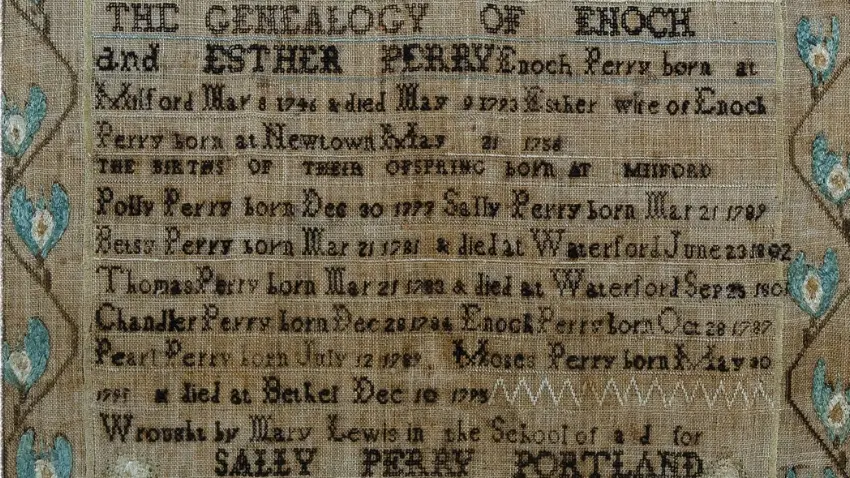 THE GENEALOGY OF ENOCH
and ESTHER PERRY Enoch Perry born at
Milford Mar 8 1746 & died May 9 1793 Esther wife of Enoch
Perry born at Newtown May 21
THE BIRTHS OF THEIR OFSPRING BORN AT MILFORD
Polly Perry born Dec 30 Sally Perry born Mar 21
Betsy Perry born Mar 21 1781 & died at Waterford June 23 1802
Thomas Perry born Mar 21 1783 & died at Waterford Sep 23 1801
Chandler Perry born Dec 28 Enoch Perry born Oct 28 1787
Pearl Perry born July 12 1789 Moses Perry born May
& died at Bethel Dec 10
Wrought by Mary Lewis in the School of for
SALLY PERRY PORTLAND